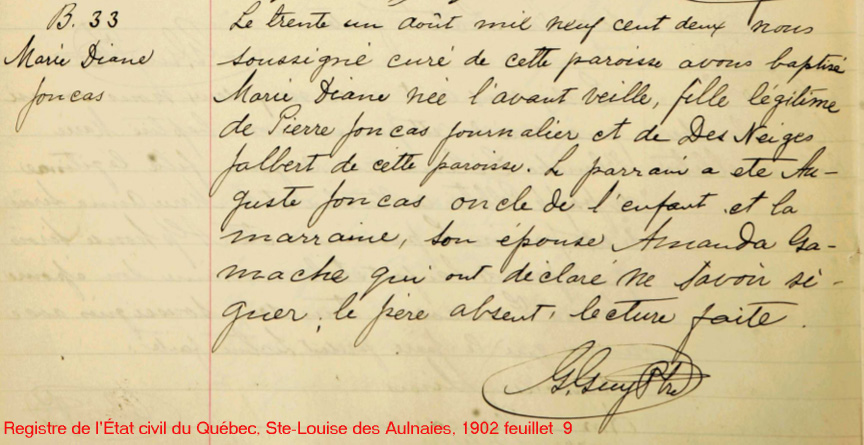 B. 33
Marie Diane
Joncas
Le trente un août mil neuf cent deux nous
soussigné curé de cette paroisse avons baptisé
Marie Diane née l'avant veille, fille légitime
de Pierre Joncas journalier et de Des Neiges
Jalbert de cette paroisse. Le parrain a ete Au-
guste Joncas oncle de l'enfant et la
marraine, son épouse Amanda Ga-
mache qui ont déclaré ne savoir si-
gner, le père absent, lecture faite.
G. Guy Ptre
Registre de l'État civil du Québec, Ste-Louise des Aulnaies, 1902 feuillet 9